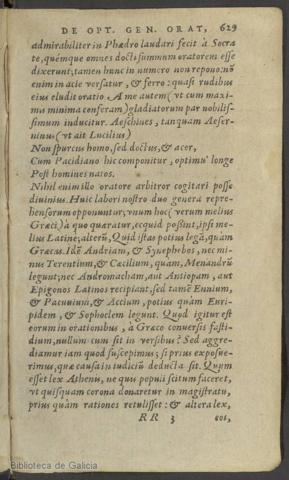 DE OPT. GEN. ORAT, 629
admirabiliter in Phædro laudari fecit à Socra
te, quémque omnes docti summum oratorem esse
dixerunt, tamen hunc in numero non repono: nō
enim in acie versatur, & ferro: quasi rudibus
eius eludit oratio. A me autem (vt cum maxi
mis minima conferam) gladiatorum par nobilis-
simum inducitur. Aeschines, tanquam Aeser-
ninus (vt ait Lucilius)
Non spurcus homo, sed doctus, & acer,
Cum Pacidiano hic componitur, optimu' longe
Post homines natos.
Nihil enim illo oratore arbitror cogitari posse
diuinius. Huic labori nostro duo genera repre-
hensorum opponuntur, vnum hoc (verum melius
Græci,) à quo quæratur, ecquid possint, ipsi me-
lius Latine; alterū, Quid istas potius legā, quàm
Græcas. Idē Andriam, & Synephebos, nec mi-
nus Terentium, & Cæcilium, quam, Menandrū
legunt; nec Andromacham, aut Antiopam, aut
Epigonos Latinos recipiant, sed tamē Ennium,
& Pacuuium, & Accium, potius quàm Euri-
pidem, & Sophoclem legunt. Quod igitur est
eorum in orationibus, à Græco conuersis fasti-
dium, nullum cum sit in versibus? Sed aggre-
diamur iam quod suscepimus; si prius exposue-
rimus, quæ causa in iudiciū deducta sit. Quum
esset lex Athenis, ne quis populi scitum faceret,
vt quisquam corona donaretur in magistratu,
prius quàm rationes retulisset: & altera lex,
RR 3 eos,
Biblioteca de Galicia